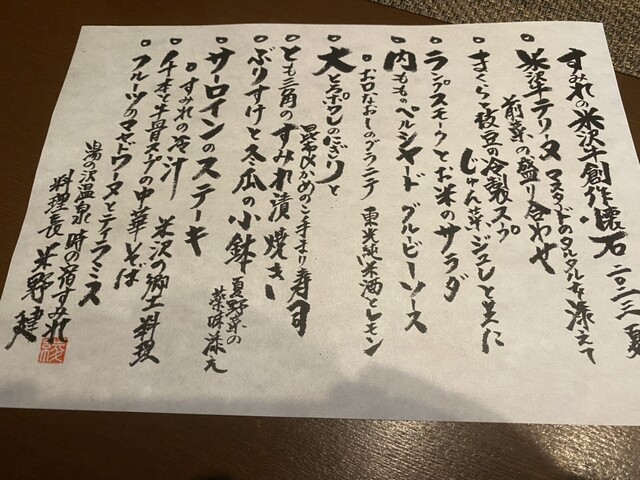 すみれの米沢牛創作懐石 二〇二三 夏
米沢牛テリーヌ マスタードのタルタルを添えて
前菜の盛り合わせ
まくらぎ枝豆の冷製スープ
じゅん菜ジュレと共に
ランプスモークとお米のサラダ
内もものペルシヤード グルービーソース
お口なおしのグラニテ 東光純米酒とレモン
大とろ炙りのにぎりと
昆布〆かめのこ手まり寿司
とも三角のすみれ漬 焼き
ぶりすけと冬瓜の小鉢
夏野菜の
薬味添え
サーロインのステーキ
すみれの冷汁 米沢の郷土料理
イチボと牛骨スープの中華そば
フルーツのマセドワーヌとティラミス
湯の沢温泉 時の宿すみれ
料理長 米野 健